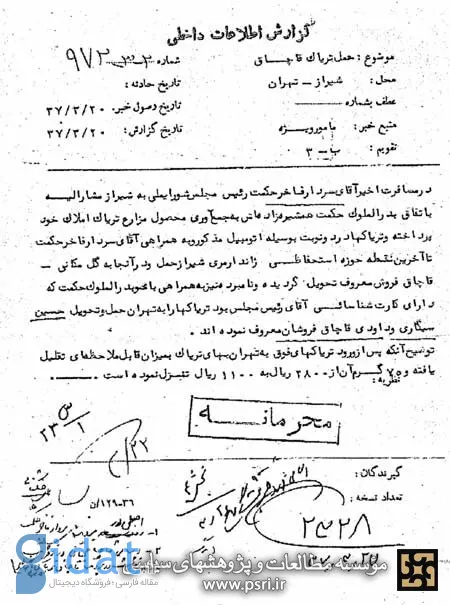 گزارش اطلاعات داخلی
موضوع : حمل تریاک قاچاق
شماره ۹۷۲
محل : شیراز - تهران
تاریخ حادثه :
عطف بشماره
تاریخ وصول خبر. ۳۷/۳/۲۰
منبع خبر : مامورویژه
تاریخ گزارش : ۳۷/۳/۲۰
تقویم : ب - ۳
در مسافرت اخیر آقای سردار فاخر حکمت رئیس مجلس شورایملی به شیراز مشارالیه
با تفاق بدرالملوک حکمت همشیره زاده اش به جمع آوری محصول مزارع تریاک املاک خود
پرداخته و تریاکها در دو نوبت بوسیله اتومبیل مذکور و به همراهی آقای سردار فاخر حکمت
تا آخرین نقطه حوزه استحفاظی ژاندارمری شیراز حمل و در آنجا به گل مکانی -
قاچاق فروش معروف تحویل گردیده و نامبرده نیز به همراهی بانو بدرالملوک حکمت که
دارای کارت شناسائی آقای رئیس مجلس بود تریاکها را به تهران حمل و تحویل حسین
سیگاری و داودی قاچاق فروشان معروف نموده اند .
توضیح آنکه پس از ورود تریاکهای فوق به تهران بهای تریاک بمیزان قابل ملاحظه ای تقلیل
یافته و ۷۵ گرم آن از ۲۸۰۰ ریال به ۱۱۰۰ ریال تنزل نموده است .
نظریه :
محرمانه
۲۲
گیرندگان :
تعداد نسخه :
۲۳۲۸
۵/۱۲۹۰۳۶
اصلی در
-۱
gidat
مقاله فارسی • فروشگاه دیجیتال
مؤسسه مطالعات و پژوهشهای سیاسی
www.psri.ir